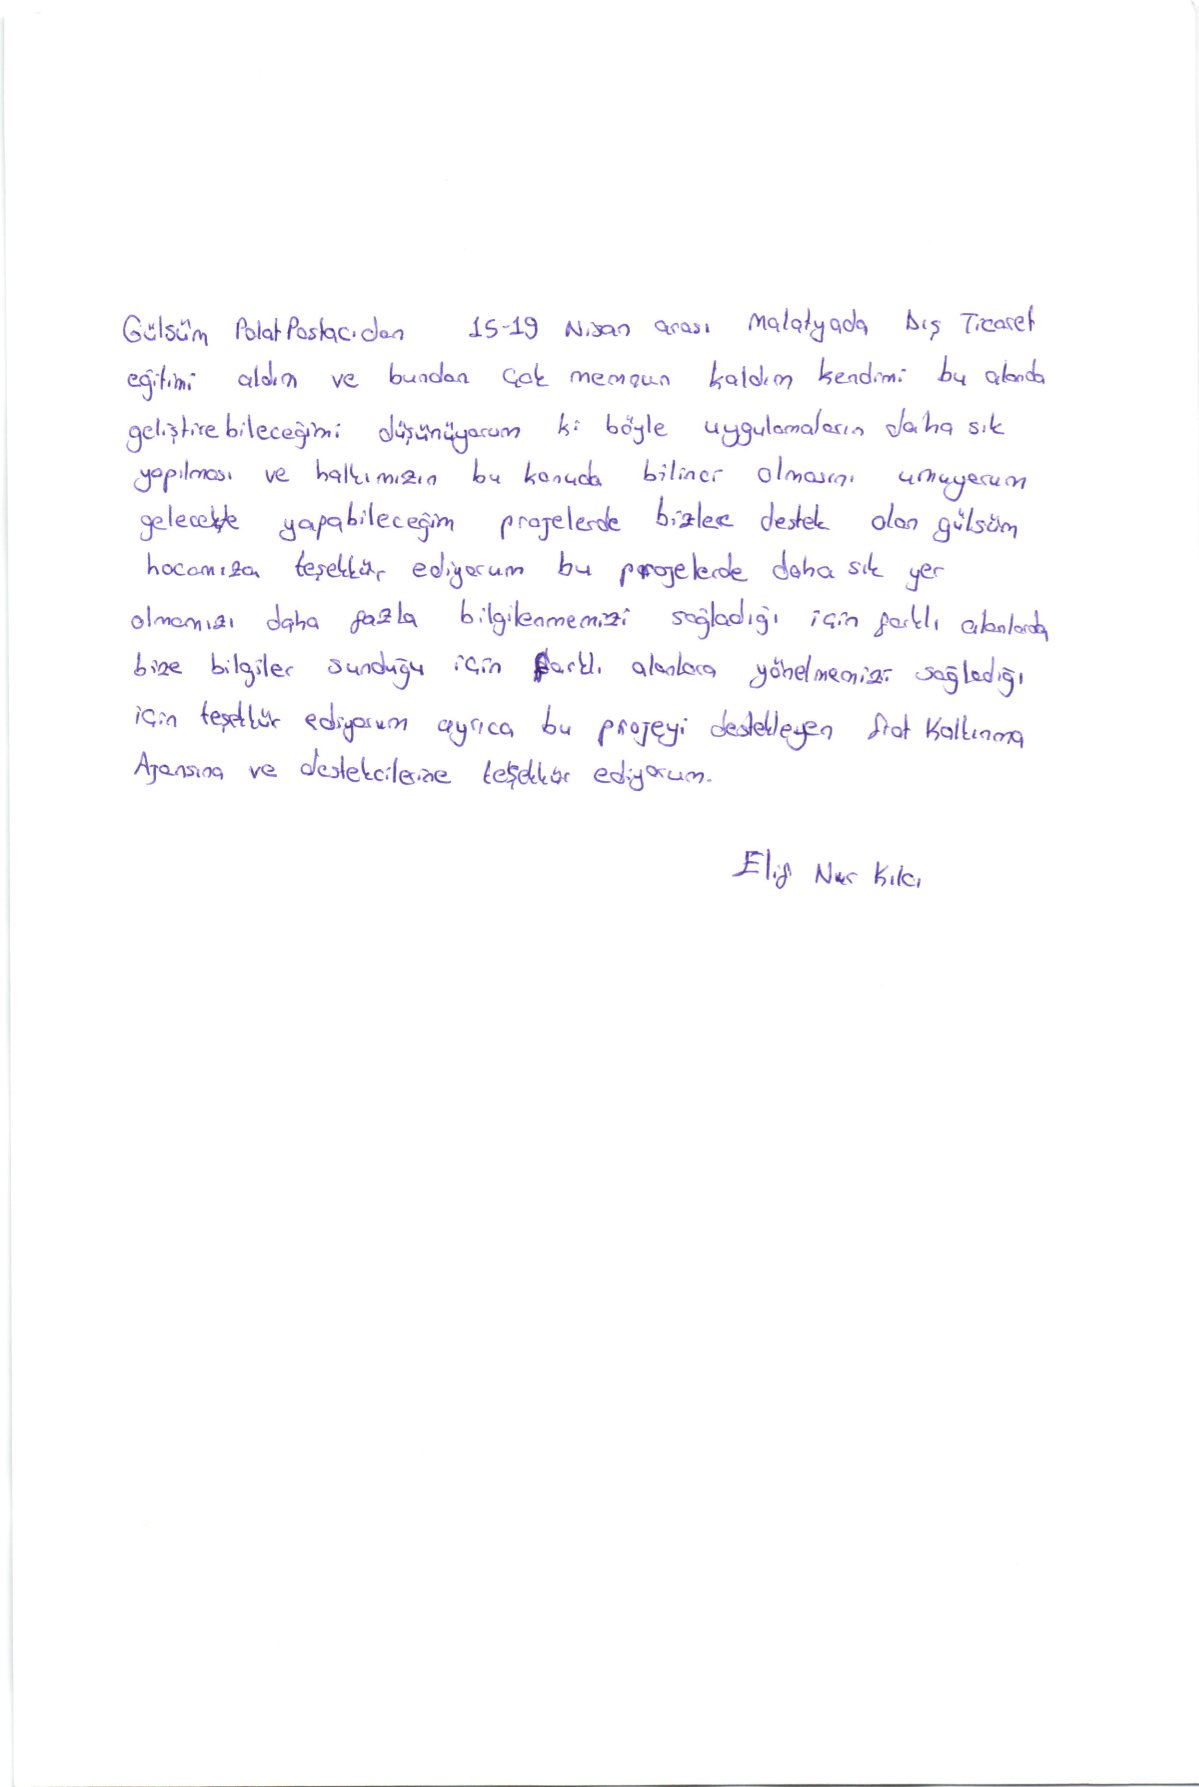 Gülsüm Polat Postacıdan 15-19 Nisan arası Malatyada Dış Ticaret
eğitimi aldım ve bundan çok memnun kaldım kendimi bu alanda
geliştirebileceğimi düşünüyorum ki böyle uygulamaların daha sık
yapılması ve halkımızın bu konuda bilinci olmasını umuyorum
gelecekte yapabileceğim projelerde bizlere destek olan gülsüm
hocamıza teşekkür ediyorum bu projelerde daha sık yer
olmamızı daha fazla bilgilenmemizi sağladığı için farklı alanlarda
bize bilgiler sunduğu için farklı alanlara yönelmemizi sağladığı
için teşekkür ediyorum ayrıca bu projeyi destekleyen fırat Kalkınma
Ajansına ve destekcilerine teşekkür ediyorum.
Elif Nur Kılcı